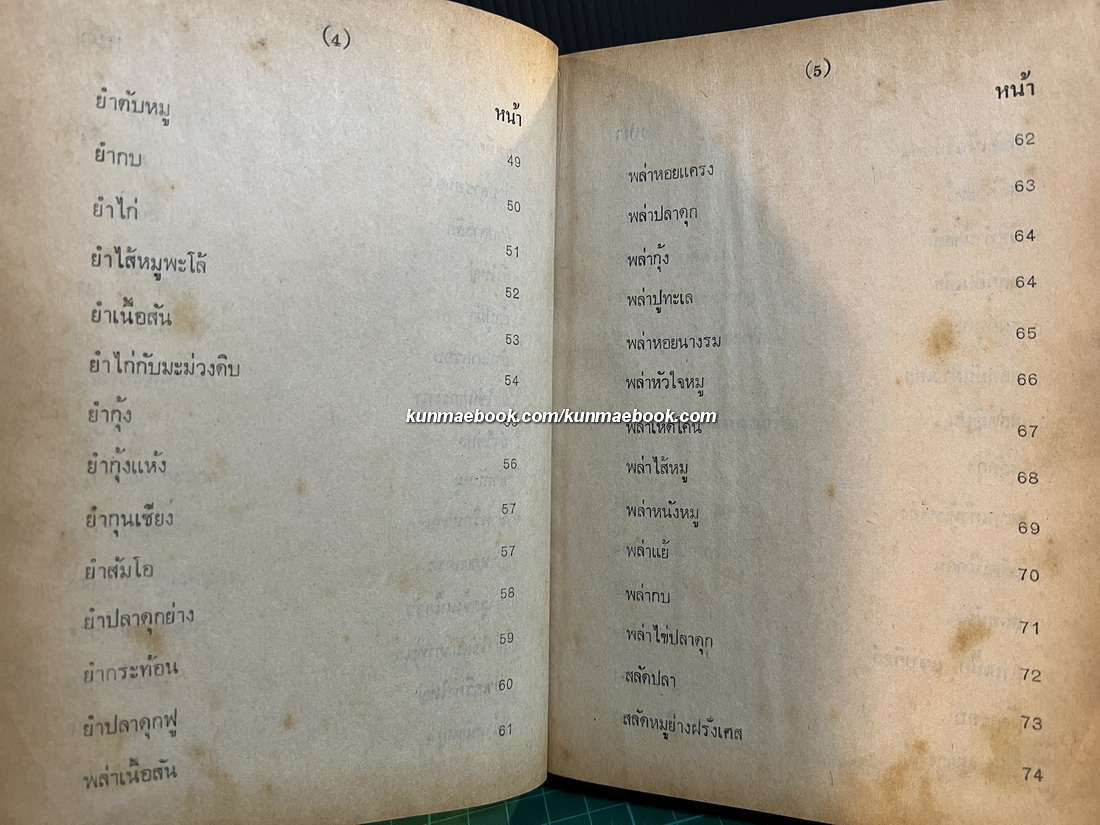 (4)
หน้า
ยำตับหมู 49
ยำกบ 50
ยำไก่ 51
ยำไส้หมูพะโล้ 52
ยำเนื้อสัน 53
ยำไก่กับมะม่วงดิบ 54
ยำกุ้ง
ยำกุ้งแห้ง 56
ยำกุนเซียง 57
ยำส้มโอ 57
ยำปลาดุกย่าง 58
ยำกระท้อน 59
ยำปลาดุกฟู 60
พล่าเนื้อสัน 61
(5)
หน้า
พล่าหอยแครง 62
พล่าปลาดุก 63
พล่ากุ้ง 64
พล่าปูทะเล 64
พล่าหอยนางรม 65
พล่าหัวใจหมู 66
พล่าเห็ดโคน 67
พล่าไส้หมู 68
พล่าหนังหมู 69
พล่าแย้ 70
พล่ากบ 71
พล่าไข่ปลาดุก 72
สลัดปลา 73
สลัดหมูย่างฝรั่งเศส 74
kunmaebook.com/kunmaebook.com